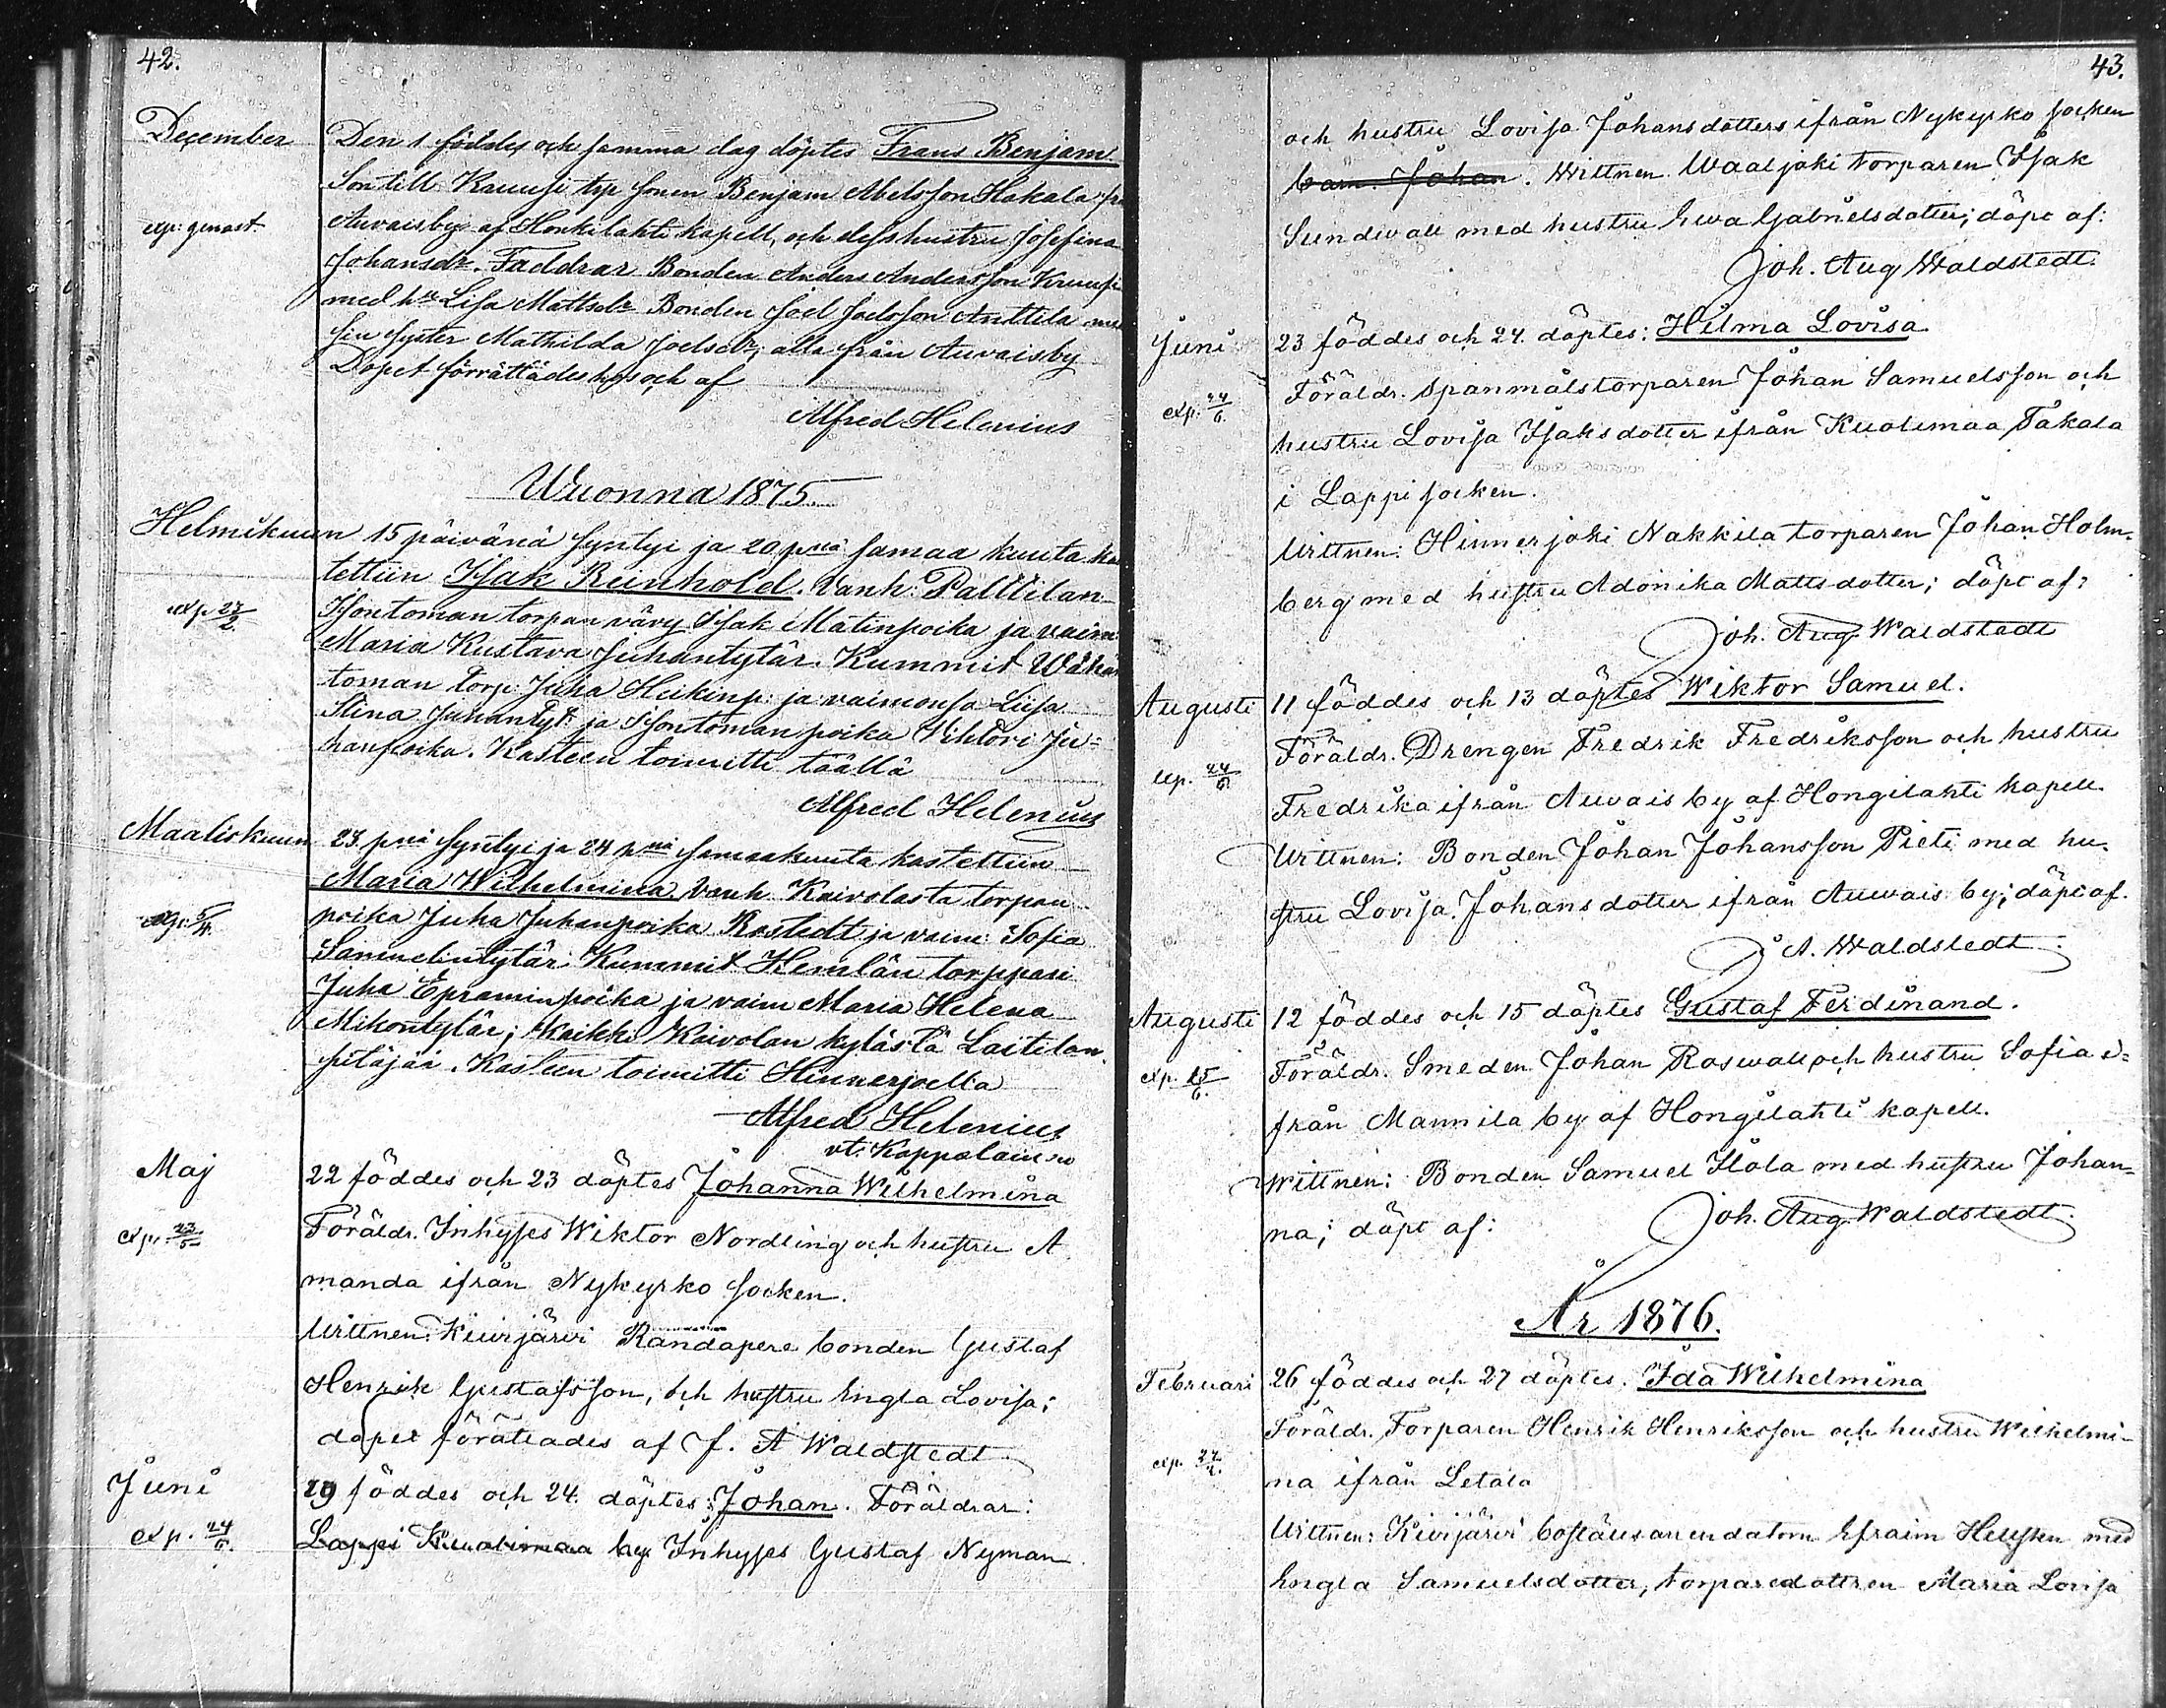 42.
December Den 1 föddes och samma dag döptes Frans Benjam
Son till Kauusi trp sonen Benjam Abelsson Hakala
exp: genast Auvaisby af Honkilahti kapell, och dess hustru Josefina
Johansdr. Faddrar Bonden Anders Andersson
med h:u Lisa Mattsdr Bonden Joel Joelsson Anttila
sin syster Mathilda Joelsdr, alla från Auvaisby
Dopet förrättades och af
Alfred Helenius
Wuonna 1875.
Helmikuun 15 päivänä syntyi ja 20 pnä samaa kuuta kas
tettiin Isak Reinhold. Vanh:
exp 27/2. Isontoman torpan vävy Isak Matinpoika ja vaim
Maria Kustava Juhantytär. Kummit Wähän
toman torp: Juha Heikinp: ja vaimonsa Liisa
Stina Juhantyt: ja Isontoman poika Viktori Ju=
hanpoika. Kasteen toimitti täällä
Alfred Helenius
Maaliskuun 23 pnä syntyi ja 24 pnä samaakuuta kastettiin
Maria Wilhelmina. Vanh Kaivolasta torpan
exp: 5/4. poika Juha Juhanpoika Rostedt ja vaim: Sofia
Samuelintytär. Kummit Hemlän torppari
Juha Epraminpoika ja vaim Maria Helena
Mikontytär; kaikki Kaivolan kylästä Laitilan
pitäjää. Kasteen toimitti Hinnerjoella
Alfred Helenius
vt. Kappalainen
Maj 22 föddes och 23 döptes Johanna Wilhelmina
exp. 23/5 Föräldr. Inhyses Wiktor Nordling och hustru A
manda ifrån Nykyrko socken.
Wittnen: Kiurjärvi Randapere bonden Gustaf
Henrik Gustafsson, och hustru Engla Lovisa;
dopet förättades af J. A Waldstedt
Juni 19 föddes och 24. döptes: Johan. Föräldrar:
exp. 24/6. Lappi Kualimaa by Inhyses Gustaf Nyman
43.
och hustru Lovisa Johansdotters ifrån Nykyrko socken
barn: Johan. Wittnen. Waaljoki torparen Isak
Sundwall med hustru Ewa Gabrielsdotter; döpt af:
Joh. Aug Waldstedt.
Juni 23 föddes och 24. döptes: Hilma Lovisa
exp. 24/6. Föräldr. Spanmålstorparen Johan Samuelsson och
hustru Lovisa Isaksdotter ifrån Kualimaa Takala
i Lappi socken.
Wittnen: Hinnerjoki Nakkila torparen Johan Holm-
berg med hustru Adonika Mattsdotter; döpt af:
Joh. Aug. Waldstedt
Augusti 11 föddes och 13 döptes Wiktor Samuel.
exp. 24/6. Föräldr. Drengen Fredrik Fredriksson och hustru
Fredrika ifrån Auvais by af Hongilahti kapell.
Wittnen: Bonden Johan Johansson Pieti med hu-
stru Lovisa Johansdotter ifrån Auvais by; döpt af.
J A. Waldstedt
Augusti 12 föddes och 15 döptes Gustaf Ferdinand.
exp. 15/6. Föräldr. Smeden Johan Roswall och hustru Sofia i=
från Mannila by af Hongilahti kapell.
Wittnen: Bonden Samuel Ilola med hustru Johan-
na; döpt af: Joh. Aug. Waldstedt
År 1876.
Februari 26 föddes och 27 döptes. Ida Wilhelmina
Föräldr. Torparen Henrik Henriksson och hustru Wilhelmi-
exp. 27/2. na ifrån Letala
Wittnen: Kiurjärvi boställsarrendatorn Efraim med
Engla Samuelsdotter, torparedottren Maria Lovisa